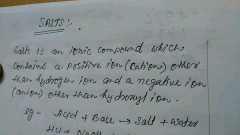 SALTS:
Salt is an ionic compound which
contains a positive ion (Cation) other
than hydrogen ion and a negative ion
(anion) other than hydroxyl ion.
eg - Acid + Base → Salt + Water